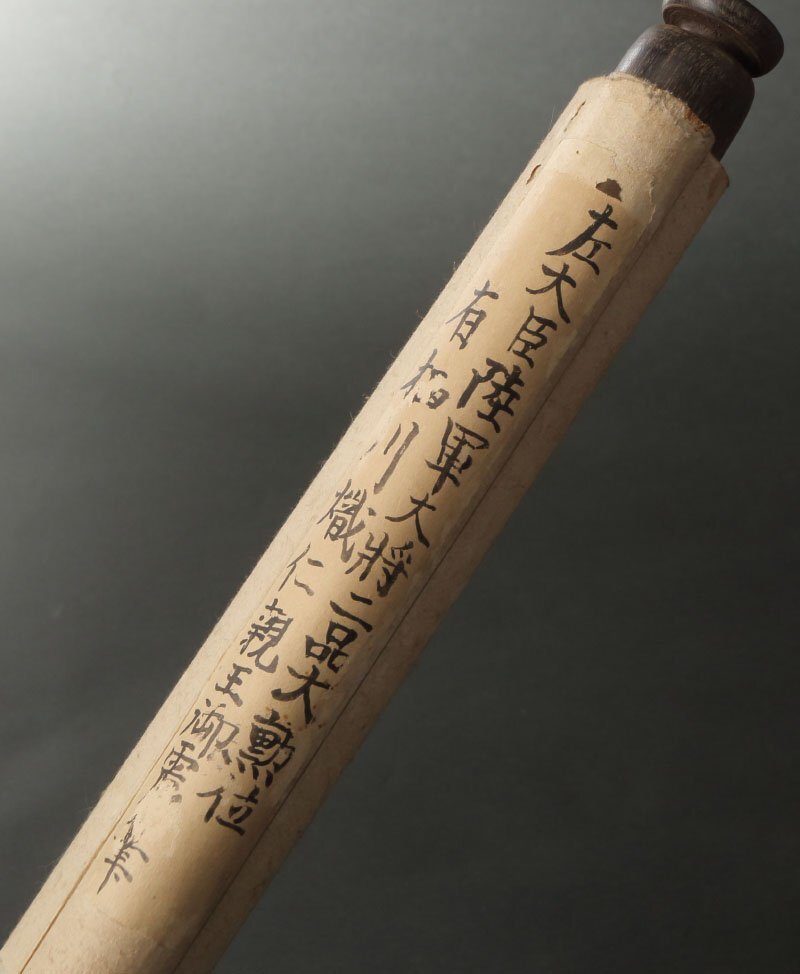 左大臣陸軍大將二品大勲位
有栖川熾仁親王御